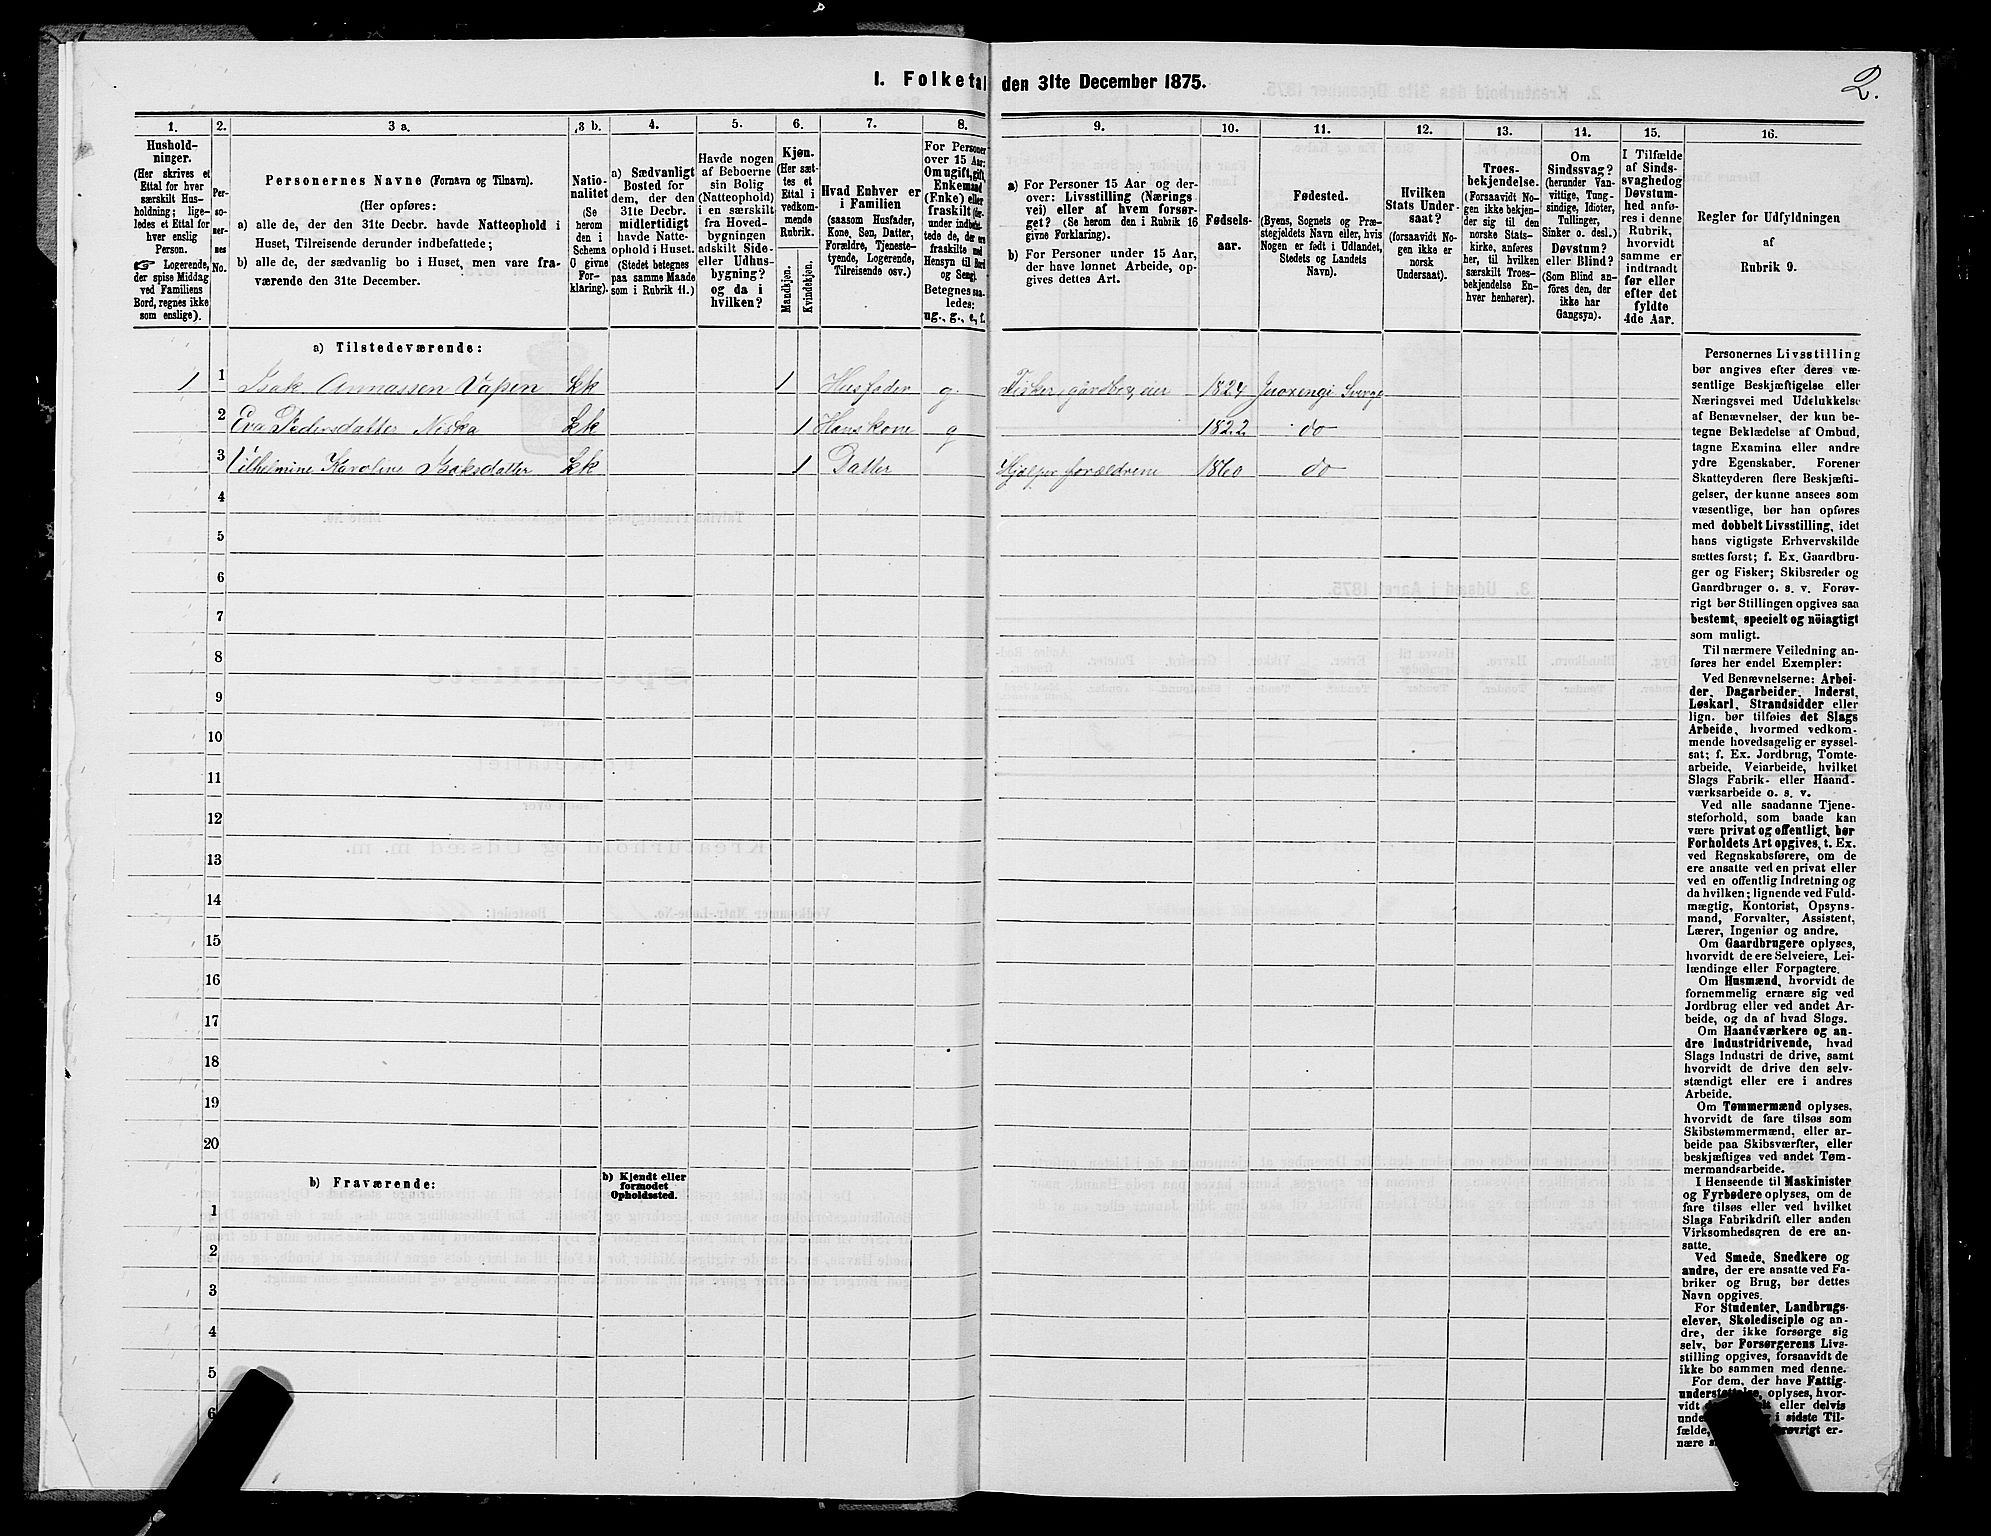 I. Folketal den 31te December 1875.
2.
1.
Hushold-
ninger.
(Her skrives et
Ettal for hver
særskilt Hus-
holdning; lige-
ledes et Ettal for
hver enslig
Person.
☞ Logerende,
der spise Middag
ved Familiens
Bord, regnes ikke
som enslige).
2.
Per-
so-
ner-
nes
No.
3 a.
Personernes Navne (Fornavn og Tilnavn).
(Her opføres:
a) alle de, der den 31te Decbr. havde Natteophold i
Huset, Tilreisende derunder indbefattede;
b) alle de, der sædvanlig bo i Huset, men vare fra-
værende den 31te December.
3 b.
Natio-
nalitet
(Se
herom
den i
Schema
O givne
For-
klaring).
4.
a) Sædvanligt
Bosted for
dem, der den
31te Decbr.
midlertidigt
havde Natte-
ophold i Huset.
(Stedet betegnes
paa samme Maade
som i Rubrik 11.)
5.
Havde nogen
af Beboerne
sin Bolig
(Natteophold)
i en særskilt
fra Hoved-
bygningen
adskilt Side-
eller Udhus-
bygning?
og da i
hvilken?
6.
Kjøn.
(Her sæt-
tes et
Ettal i
vedkom-
mende
Rubrik.
Mandkjøn.
Kvindekjøn.
7.
Hvad Enhver er
i Familien
(saasom Husfader,
Kone, Søn, Datter,
Forældre, Tjeneste-
tyende, Logerende,
Tilreisende osv.)
8.
For Personer
over 15 Aar:
Om ugift, gift,
Enkemand
(Enke) eller
fraskilt (der-
under indbefat-
tede de, der ere
fraskilte med
Hensyn til Bord
og Seng).
Betegnes saa-
ledes:
ug., g., e., f.
9.
a) For Personer 15 Aar og der-
over: Livsstilling (Nærings
vei) eller af hvem forsør-
get? (Se herom den i Rubrik 16
givne Forklaring).
b) For Personer under 15 Aar,
der have lønnet Arbeide, op-
gives dettes Art.
10.
Fødsels-
aar.
11.
Fødested.
(Byens, Sognets og Præ-
stegjeldets Navn eller, hvis
Nogen er født i Udlandet,
Stedets og Landets
Navn).
12.
Hvilken
Stats Under-
saat?
(forsaavidt No-
gen ikke er
norsk
Undersaat).
13.
Troes-
bekjendelse.
(Forsaavidt No-
gen ikke bekjen-
der sig til den
norske Stats-
kirke, anføres
her, til hvilken
særskilt Troes-
bekjendelse En-
hver henhører).
14.
Om
Sindssvag?
(herunder Van-
vittige, Tung-
sindige, Idioter,
Tullinger,
Sinker o. desl.)
Døvstum?
eller Blind?
(Som Blind an-
føres den, der
ikke har
Gangsyn).
15.
I Tilfælde
af Sinds-
svaghed og
Døvstum-
hed anfø-
res i denne
Rubrik,
hvorvidt
samme er
indtraadt
før eller
efter det
fyldte
4de Aar.
16.
Regler for Udfyldningen
af
Rubrik 9.
a) Tilstedeværende:
1 1 Isak Annassen Vapen Lk 1 Husfader g. Fisker, gårdbr, eier 1824 Juorengi Sverge
2 Eva Pedersdatter Niska Lk 1 Hans kone g 1822 do
3 Vilhelmine Karoline Isaksdatter Lk 1 Datter Hjælper forældrene 1860 do
4
5
6
7
8
9
10
11
12
13
14
15
16
17
18
19
20
b) Fraværende:
b) Kjendt eller
formodet
Opholdssted.
1
2
3
4
5
6
Personernes Livsstilling
bør angives efter deres væ-
sentlige Beskjæftigelse eller
Næringsvei med Udelukkelse
af Benævnelser, der kun be-
tegne Beklædelse af Ombud,
tagne Examina eller andre
ydre Egenskaber. Forener
Skatteyderen flere Beskjæfti-
gelser, der kunne ansees som
væsentlige, bør han opføres
med dobbelt Livsstilling, idet
hans vigtigste Erhvervskilde
sættes først; f. Ex. Gaardbru-
ger og Fisker; Skibsreder og
Gaardbruger o. s. v. Forøv-
rigt bør Stillingen opgives saa
bestemt, specielt og nöiagtigt
som muligt.
Til nærmere Veiledning an-
føres her endel Exempler:
Ved Benævnelserne: Arbei-
der, Dagarbeider, Inderst,
Løskarl, Strandsidder eller
lign. bør tilføies det Slags
Arbeide, hvormed vedkom-
mende hovedsagelig er syssel-
sat; f. Ex. Jordbrug, Tomte-
arbeide, Veiarbeide, hvilket
Slags Fabrik- eller Haand-
værksarbeide o. s. v.
Ved alle saadanne Tjene-
steforhold, som baade kan
være privat og offentligt, bør
Forholdets Art opgives, t. Ex.
ved Regnskabsførere, om de
ere ansatte ved en privat eller
ved en offentlig Indretning og
da hvilken; lignende ved Fuld-
mægtig, Kontorist, Opsyns-
mand, Forvalter, Assistent,
Lærer, Ingeniør og andre.
Om Gaardbrugere oplyses,
hvorvidt de ere Selveiere, Lei-
lændinge eller Forpagtere.
Om Husmænd, hvorvidt de
fornemmelig ernære sig ved
Jordbrug eller ved andet Ar-
beide, og da af hvad Slags.
Om Haandværkere og an-
dre Industridrivende, hvad
Slags Industri de drive, samt
hvorvidt de drive den selv-
stændigt eller ere i andres
Arbeide.
Om Tømmermænd oplyses,
hvorvidt de fare tilsøs som
Skibstømmermænd, eller ar-
beide paa Skibsværfter, eller
beskjæftiges ved andet Tøm-
mermandsarbeide.
I Henseende til Maskinister
og Fyrbødere oplyses, om de
fare tilsøs eller ved hvilket
Slags Fabrikdrift eller anden
Virksomhedsgren de ere an-
satte.
Ved Smede, Snedkere og
andre, der ere ansatte ved Fa-
briker og Brug, bør dettes
Navn opgives.
For Studenter, Landbrugs-
elever, Skoledisciple og an-
dre, der ikke forsørge sig
selv, bør Forsørgerens Livs-
stilling opgives, forsaavidt de
ikke bo sammen med denne.
For dem, der have Fattig-
understøttelse, oplyses, hvor-
vidt eller delvis
unde i sidste Til-
fælde, forøvrigt er-
nære